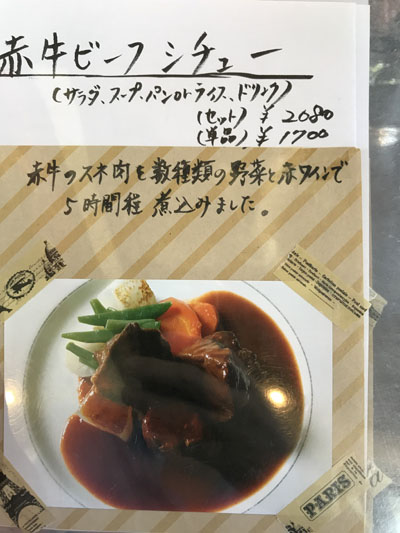 赤牛ビーフシチュー
(サラダ、スープ、パンorライス、ドリンク)
(セット) ¥2080
(単品) ¥1700
赤牛のスネ肉を数種類の野菜と赤ワインで
5時間程煮込みました。
PARIS